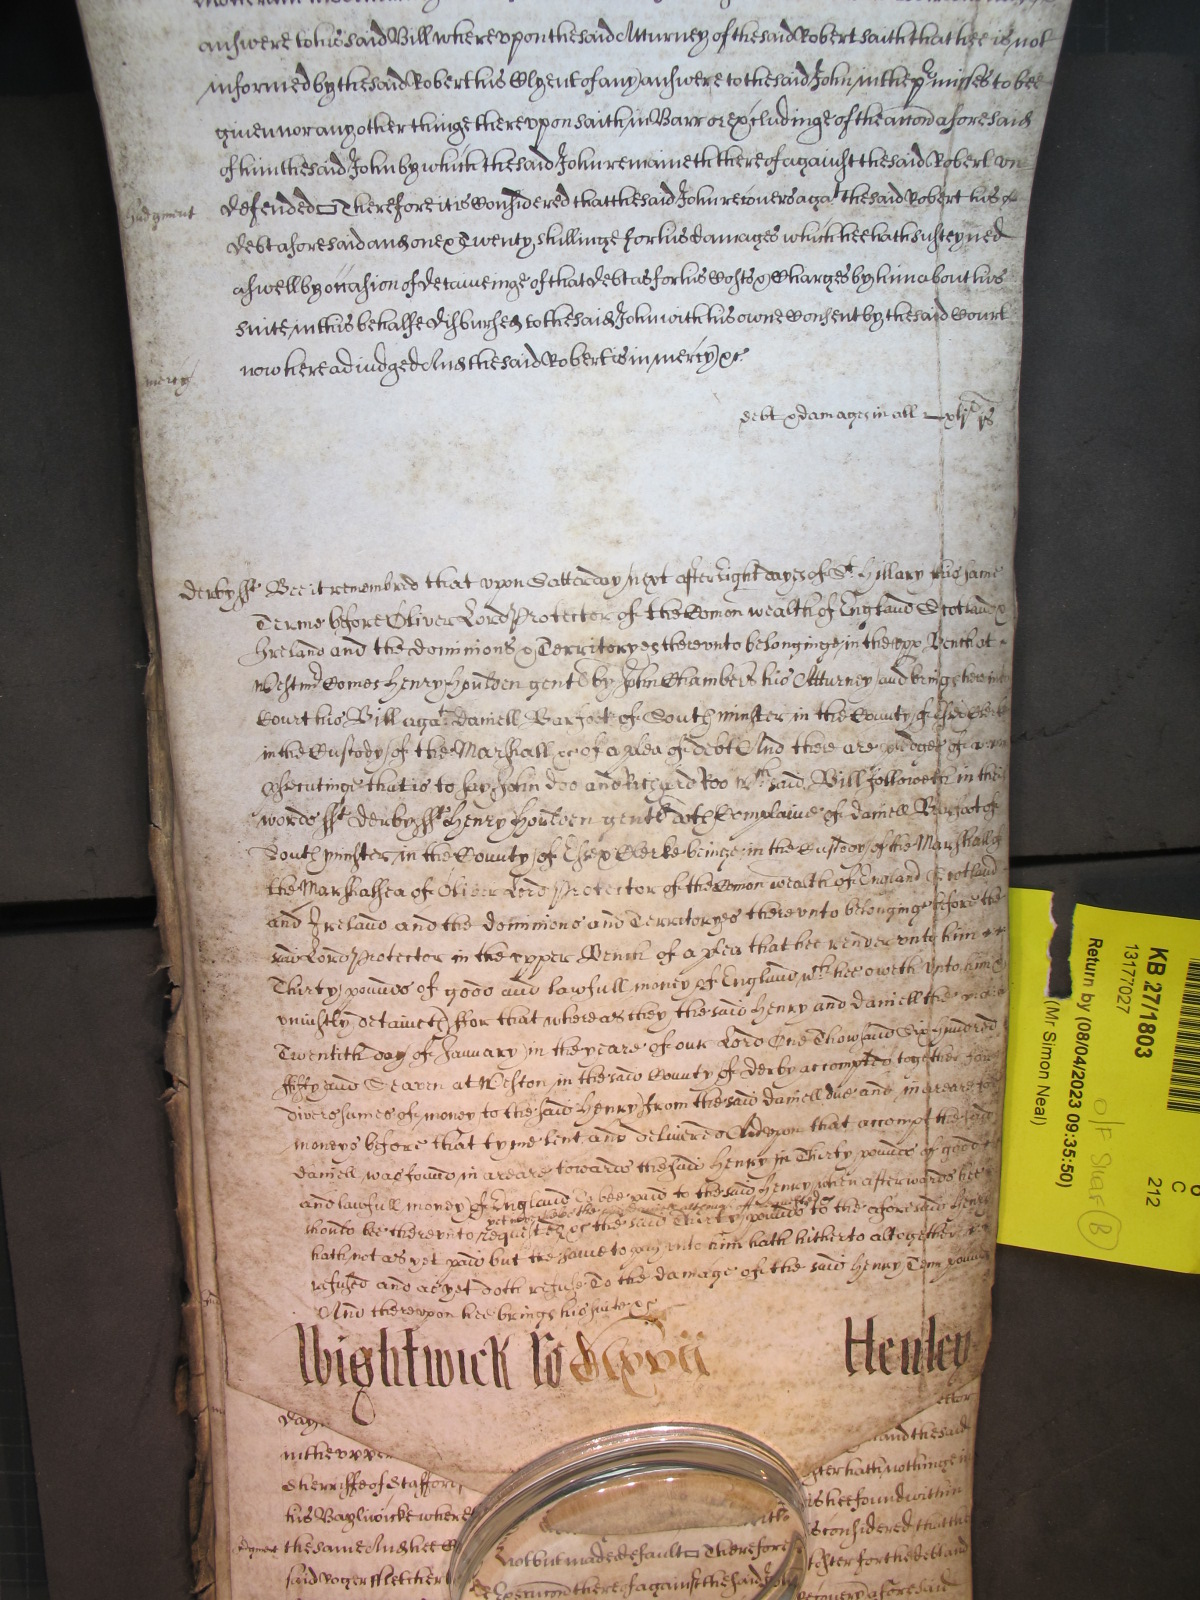 answere to his said Bill whereupon the said Atturney of the said Robert saith that hee is not
informed by the said Robert his Clyent of any answere to the said John in the p'misses to bee
given nor any other thinge thereupon saith in Barr or excludinge of the accon aforesaid
of him the said John by which the said John remaineth thereof against the said Robert un
Judgment
defended Therefore it is Considered that the said John recovers aga't the said Robert his
debt aforesaid and one & Twenty shillinge for his damages which hee hath susteyned
aswell by occasion of detaineinge of that debt as for his Costs & Charges by him about his
suite in this behalfe disbursed to the said John with his owne Consent by the said Court
mercy
now here adjudged And the said Robert is in mercy &c
debt & damages in all
derby ss Bee it remembred that upon Satterday next after Eight dayes of St Hillary this same
Terme before Oliver Lord Protector of the Comon wealth of England Scotland &
Ireland and the dominions & Territoryes thereunto belonginge in the upp Bench at
Westm Comes Henry Houlden gent by John Chambers his Atturney and brings here into
Court his Bill aga't Daniell Barfoot of Southminster in the County of Essex Clerke
in the Custody of the Marshall &c of a plea of debt And there are pledges of
p'secutinge that is to say John Doo and Richard Roo wch said Bill followeth in these
words ss derby ss Henry Houlden gent doth Complaine of Daniell Barfoot of
Southminster in the County of Essex Clerke beinge in the Custody of the Marshall of
the Marshalsea of Oliver Lord Protector of the Comon wealth of England Scotland
and Ireland and the dominions and Territoryes thereunto belonginge before the
said Lord Protector in the upper Bench of a plea that hee render unto him
Thirty pounds of good and lawfull money of England wch hee oweth unto him &
uniustly detaineth ffor that whereas they the said Henry and Daniell the
Twentith day of January in the yeare of our Lord One Thowsand Six Hundred
ffifty and Seaven at Weston in the said County of Derby accompted together for
divers sumes of money to the said Henry from the said Daniell due and in areare for
moneys before that tyme lent and delivered And upon that accompt the said
Daniell was found in areare towards the said Henry in Thirty pounds of good
and lawfull money of England To bee paid to the said Henry when afterwards hee
should bee thereunto requested
the said Thirty pounds to the aforesaid Henry
hath not as yet paid but the same to pay unto him hath hitherto altogether
refused and as yet doth refuse To the damage of the said Henry Tenn pounds
And thereupon hee brings his suite &c
Wightwick Ro
Henley
day
in the upper
and the said
Sherriffe of Stafford
hath nothinge in
his Baylwicke where
hee found within
Judgment
the same And hee
not but made default Therefore
is Considered that the
said Roger ffletcher
Execucon thereof against the said
for the debt and
recovery aforesaid
KB 27/1803
13177027
Return by (08/04/2023 09:35:50)
(Mr Simon Neal)
O/F Shelf B
C
212